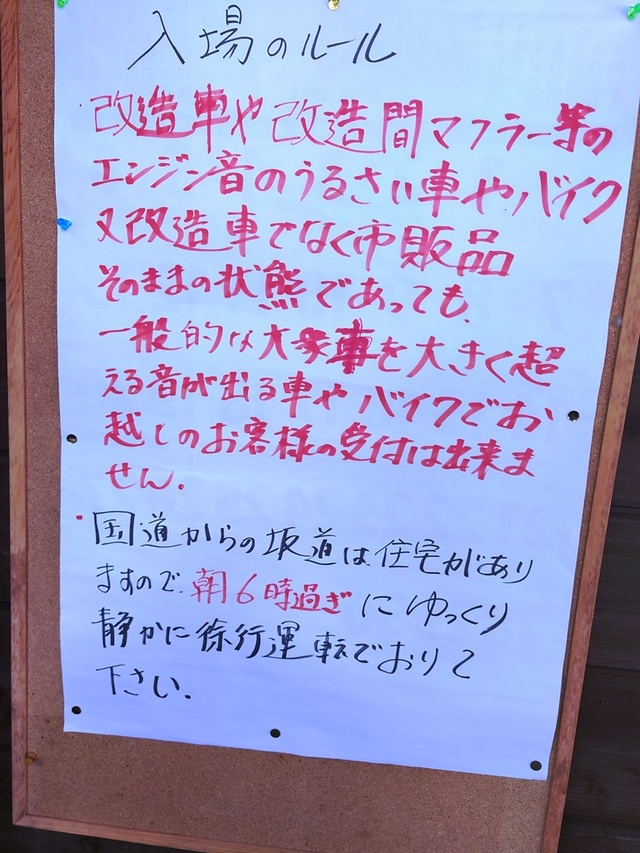 入場のルール
・改造車や改造間マフラー等の
エンジン音のうるさい車やバイク
又改造車でなく市販品
そのままの状態であっても、
一般的な大衆車を大きく超
える音が出る車やバイクでお
越しのお客様の受付は出来ま
せん.
・国道からの坂道は住宅があり
ますので、朝6時過ぎにゆっくり
静かに徐行運転でおりて
下さい.